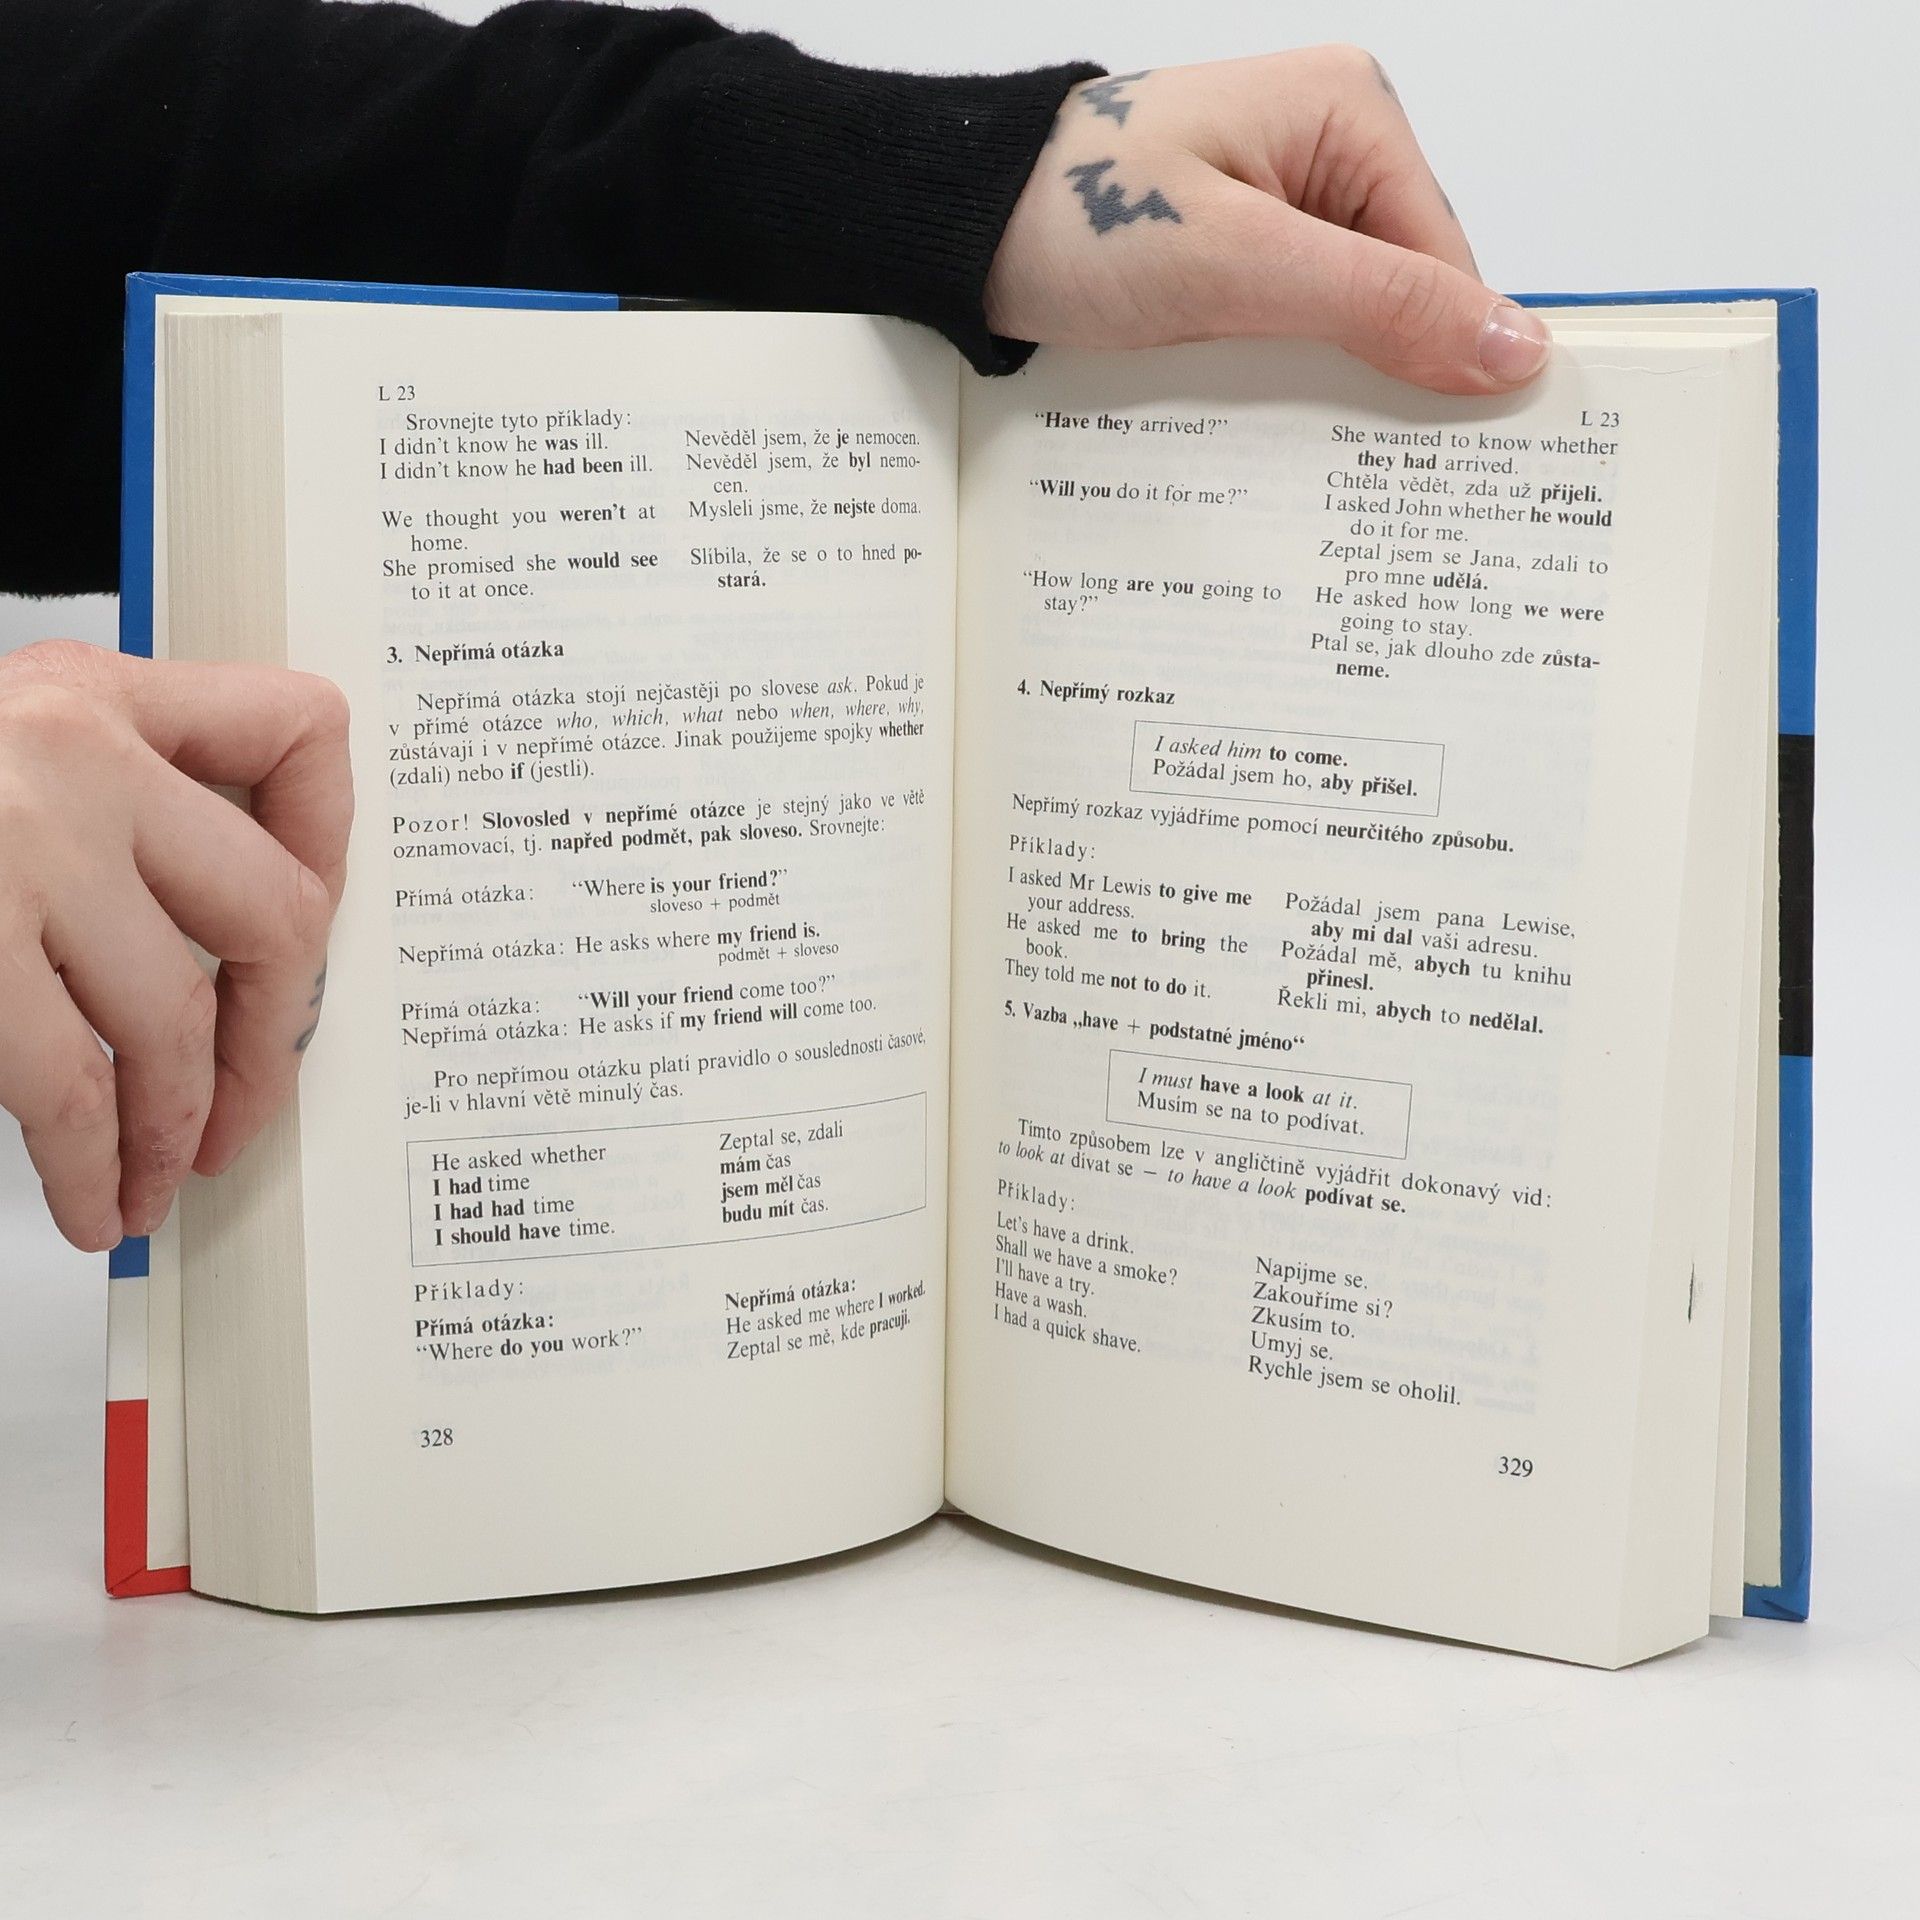 L 23
Srovnejte tyto příklady:
I didn't know he was ill. Nevěděl jsem, že je nemocen.
I didn't know he had been ill. Nevěděl jsem, že byl nemo-
cen.
We thought you weren't at Mysleli jsme, že nejste doma.
home.
She promised she would see Slíbila, že se o to hned po-
to it at once. stará.
3. Nepřímá otázka
Nepřímá otázka stojí nejčastěji po slovese ask. Pokud je
v přímé otázce who, which, what nebo when, where, why,
zůstávají i v nepřímé otázce. Jinak použijeme spojky whether
(zdali) nebo if (jestli).
Pozor! Slovosled v nepřímé otázce je stejný jako ve větě
oznamovací, tj. napřed podmět, pak sloveso. Srovnejte:
Přímá otázka: “Where is your friend?”
sloveso + podmět
Nepřímá otázka: He asks where my friend is.
podmět + sloveso
Přímá otázka: “Will your friend come too?”
Nepřímá otázka: He asks if my friend will come too.
Pro nepřímou otázku platí pravidlo o souslednosti časové,
je-li v hlavní větě minulý čas.
He asked whether Zeptal se, zdali
I had time mám čas
I had had time jsem měl čas
I should have time. budu mít čas.
Příklady:
Přímá otázka: Nepřímá otázka:
“Where do you work?” He asked me where I worked.
Zeptal se mě, kde pracuji.
328
L 23
“Have they arrived?” She wanted to know whether
they had arrived.
Chtěla vědět, zda už přijeli.
“Will you do it for me?” I asked John whether he would
do it for me.
Zeptal jsem se Jana, zdali to
pro mne udělá.
“How long are you going to He asked how long we were
stay?” going to stay.
Ptal se, jak dlouho zde zůsta-
neme.
4. Nepřímý rozkaz
I asked him to come.
Požádal jsem ho, aby přišel.
Nepřímý rozkaz vyjádříme pomocí neurčitého způsobu.
Příklady:
I asked Mr Lewis to give me Požádal jsem pana Lewise,
your address. aby mi dal vaši adresu.
He asked me to bring the Požádal mě, abych tu knihu
book. přinesl.
They told me not to do it. Řekli mi, abych to nedělal.
5. Vazba „have + podstatné jméno“
I must have a look at it.
Musím se na to podívat.
Tímto způsobem lze v angličtině vyjádřit dokonavý vid:
to look at dívat se – to have a look podívat se.
Příklady:
Let's have a drink. Napijme se.
Shall we have a smoke? Zakouříme si?
I'll have a try. Zkusím to.
Have a wash. Umyj se.
I had a quick shave. Rychle jsem se oholil.
329